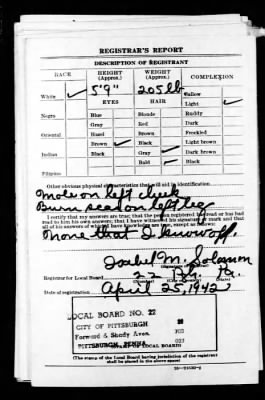 REGISTRAR'S REPORT
DESCRIPTION OF REGISTRANT
RACE
HEIGHT (Approx.)
WEIGHT (Approx.)
COMPLEXION
White ✓
5'9"
205 lb
Sallow
EYES
HAIR
Light ✓
Negro
Blue
Blonde
Ruddy
Gray
Red
Dark
Oriental
Hazel
Brown
Freckled
Brown ✓
Black
Light brown
Indian
Black
Gray ✓
Dark brown
Bald ✓
Black
Other obvious physical characteristics that will aid in identification
Mole on left cheek
Burn scar on left leg
I certify that my answers are true; that the person registered has read or has had
read to him his own answers; that I have witnessed his signature or mark and that
all of his answers of which I have knowledge are true, except as follows:
None that I know of.
Isabel M. Solomon
Registrar for Local Board
22
Pa.
Date of registration
April 25, 1942
LOCAL BOARD NO. 22
CITY OF PITTSBURGH
Forward & Shady Aves.
003
PITTSBURGH, PENNA.
(The stamp of the Local Board having jurisdiction of the registrant
shall be placed in the above space)